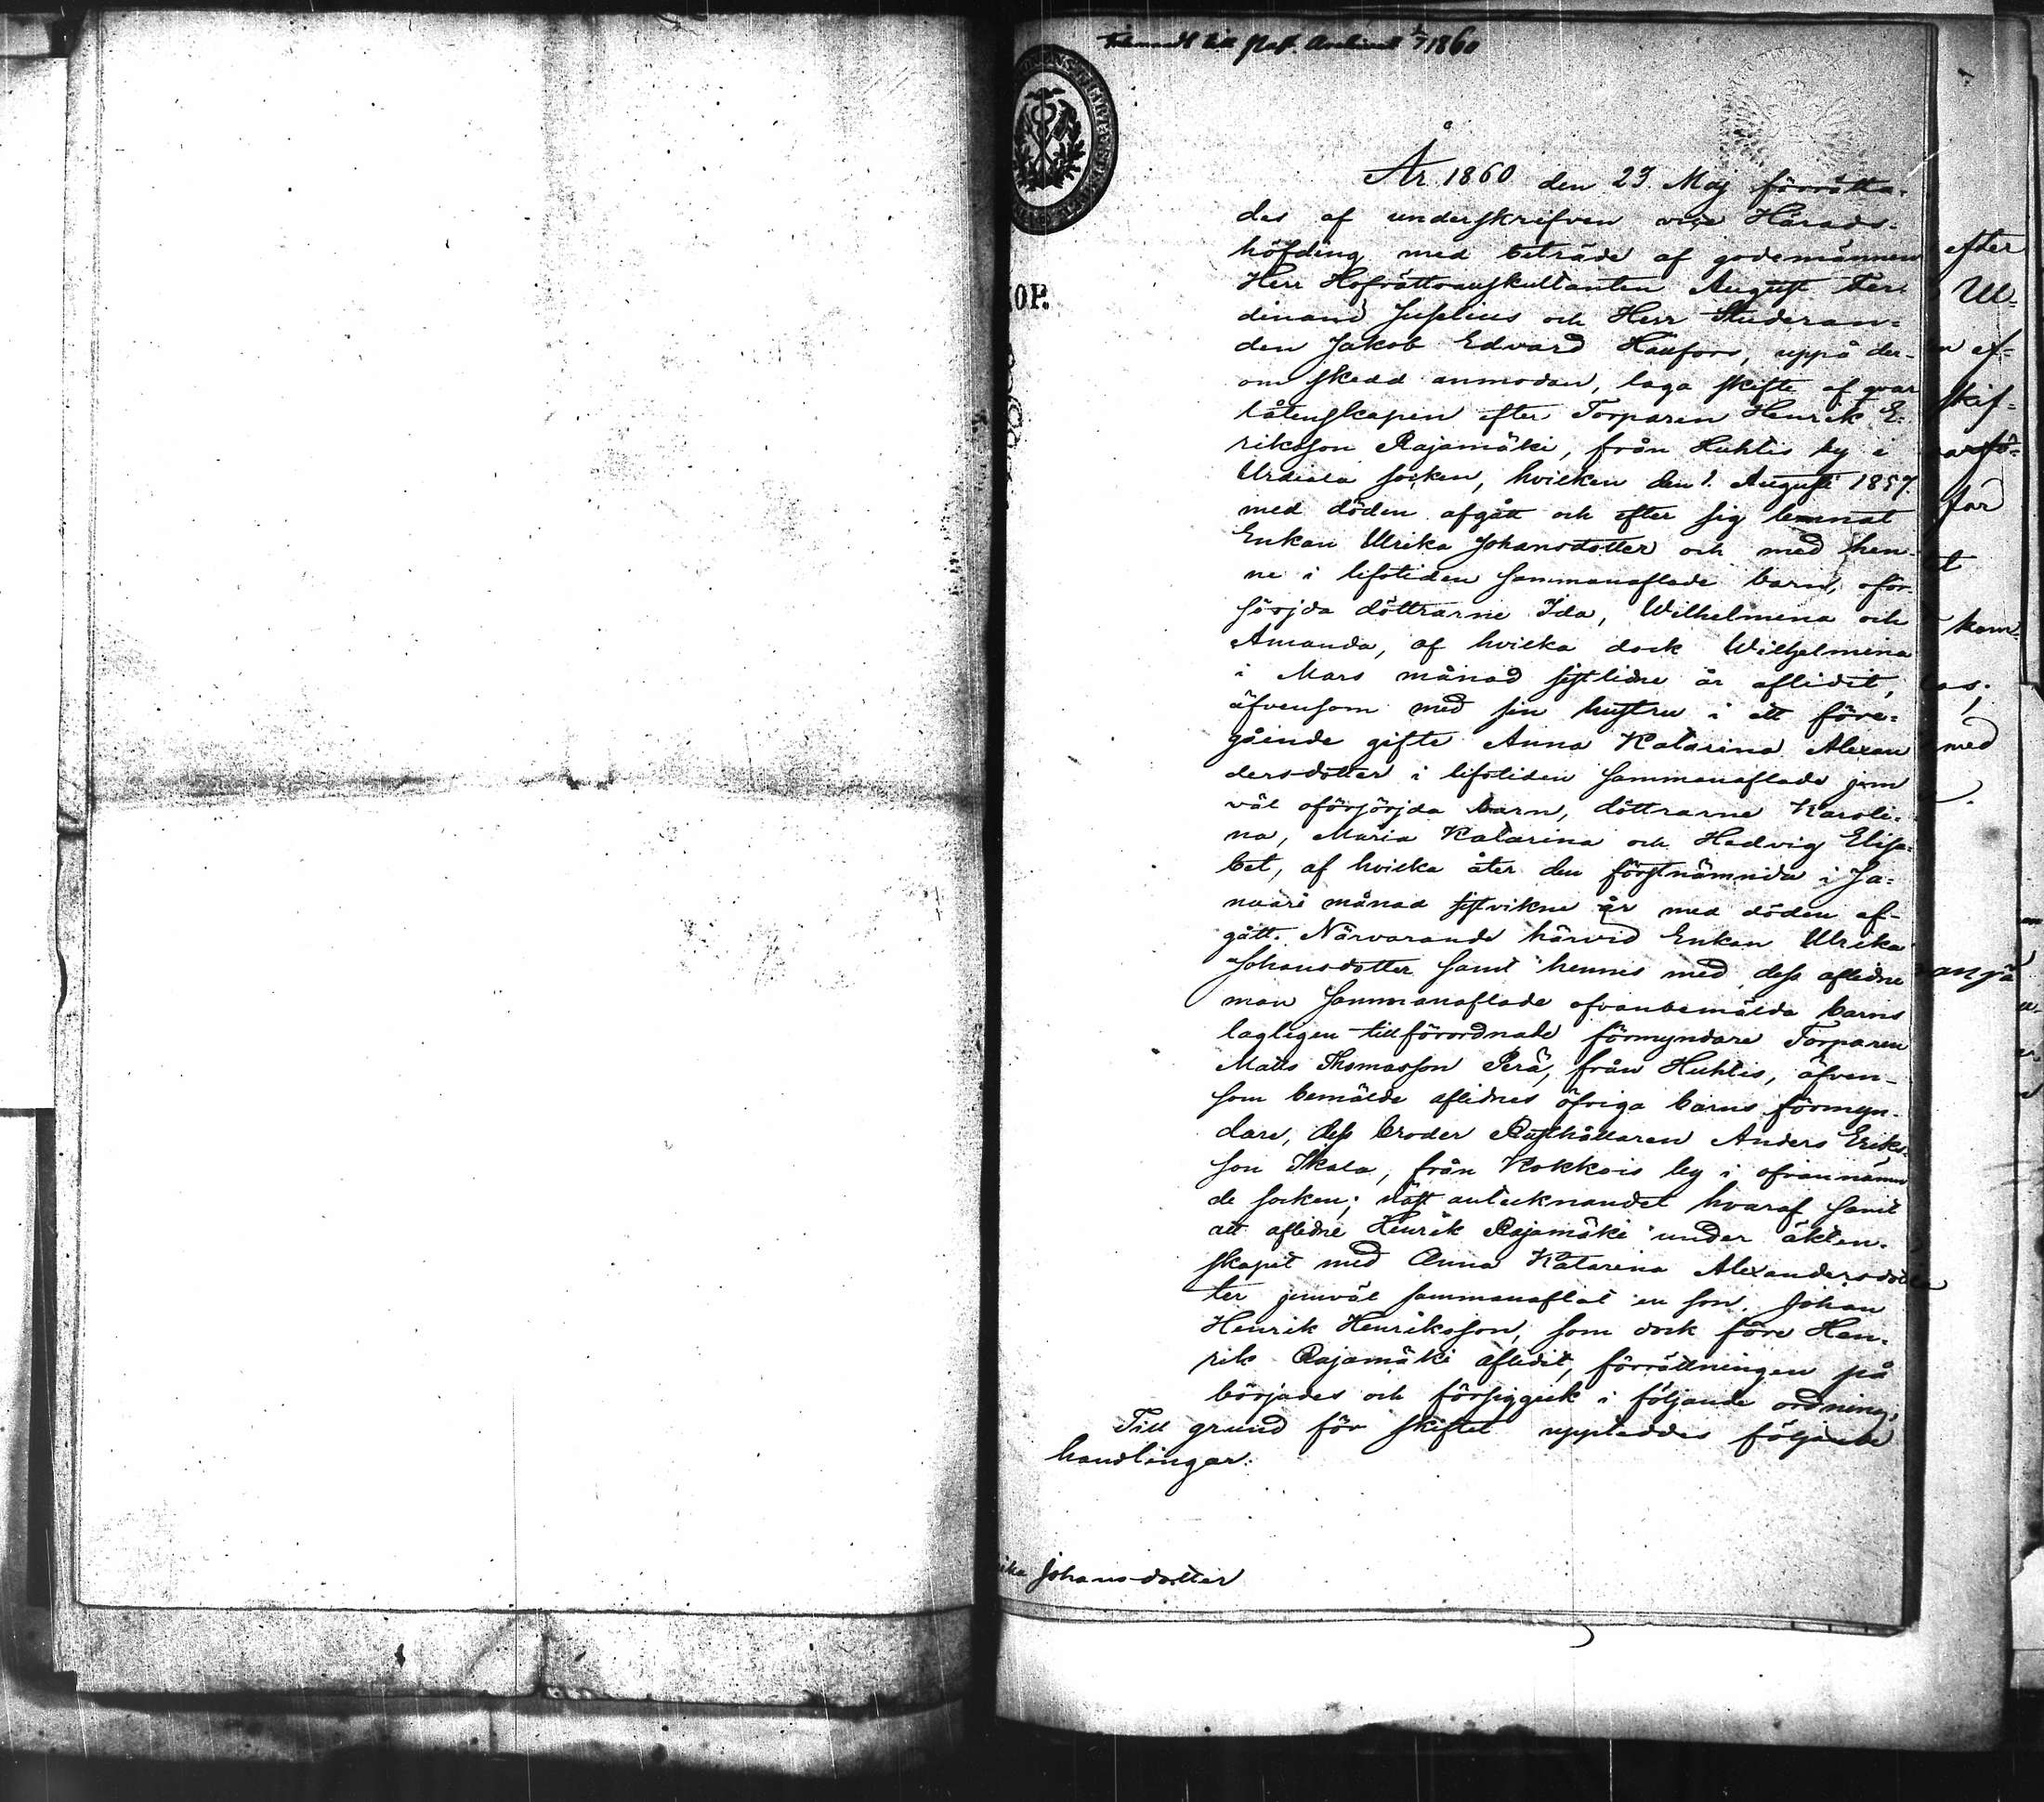 1860
OP.
År 1860 den 23 Maj förrätta-
des af underskrifven vice Härads-
höfding med beträde af godemännen
Herr Hofrättsauskultanten August Fer-
dinand Juselius och Herr Studeran-
den Jakob Edvard Haufors, uppå der-
om skedd anmodan, laga skifte af qvar
låtenskapen efter Torparen Henrik E-
riksson Rajamäki, från Huhtis by i
Urdiala socken, hvilken den 1. Augusti 1857
med döden afgått och efter sig lemnat
Enkan Ulrika Johansdotter och med hen-
ne i lifstiden sammanaflade barn, oför-
sörjda döttrarne Ida, Wilhelmina och
Amanda, af hvilka dock Wilhelmina
i Mars månad sistlidne år aflidit,
äfvensom med sin hustru i ett före-
gående gifte Anna Katarina Alexan
dersdotter i lifstiden sammanaflade jem
väl oförsörjda barn, döttrarne Karoli-
na, Maria Katarina och Hedvig Elisa-
bet, af hvilka åter den förstnämnda i Ja-
nuari månad sistvikne år med döden af-
gått. Närvarande härvid Enkan Ulrika
Johansdotter samt hennes med dess aflidne
man sammanaflade ofvanbemälda barns
lagligen tillförordnade förmyndare Torparen
Matts Thomasson Perä, från Huhtis, äfven-
som bemälde aflidnes öfriga barns förmyn-
dare, dess broder Rusthållaren Anders Eriks-
son Skala, från Kokkois by i ofvannämn
de socken; näst antecknandet hvaraf samt
att aflidne Henrik Rajamäki under äkten-
skapet med Anna Katarina Alexandersdot
ter jemväl sammanaflat en son, Johan
Henrik Henriksson, som dock före Hen-
rik Rajamäki aflidit, förrättningen på
börjades och försiggick i följande ordning.
Till grund för skiftet uppladdes följande
handlingar:
ika Johansdotter
efter
Ul-
af-
skif-
far
t
kom-
as;
med